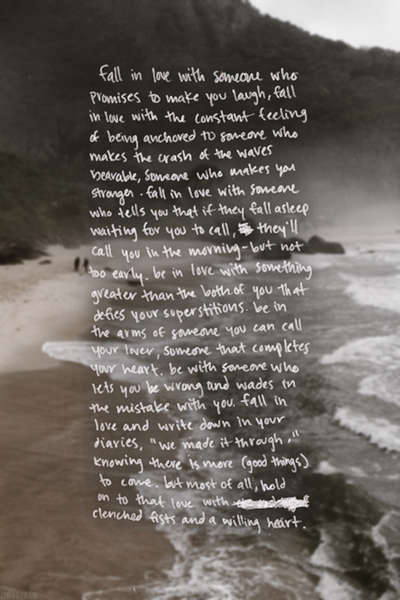 fall in love with someone who
promises to make you laugh, fall
in love with the constant feeling
of being anchored to someone who
makes the crash of the waves
bearable, someone who makes you
stronger. fall in love with someone
who tells you that if they fall asleep
waiting for you to call, they'll
call you in the morning-but not
too early. be in love with something
greater than the both of you that
defies your superstitions. be in
the arms of someone you can call
your lover, someone that completes
your heart. be with someone who
lets you be wrong and wades in
the mistake with you. fall in
love and write down in your
diaries, "we made it through,"
knowing there is more (good things)
to come. but most of all, hold
on to that love with
clenched fists and a willing heart.